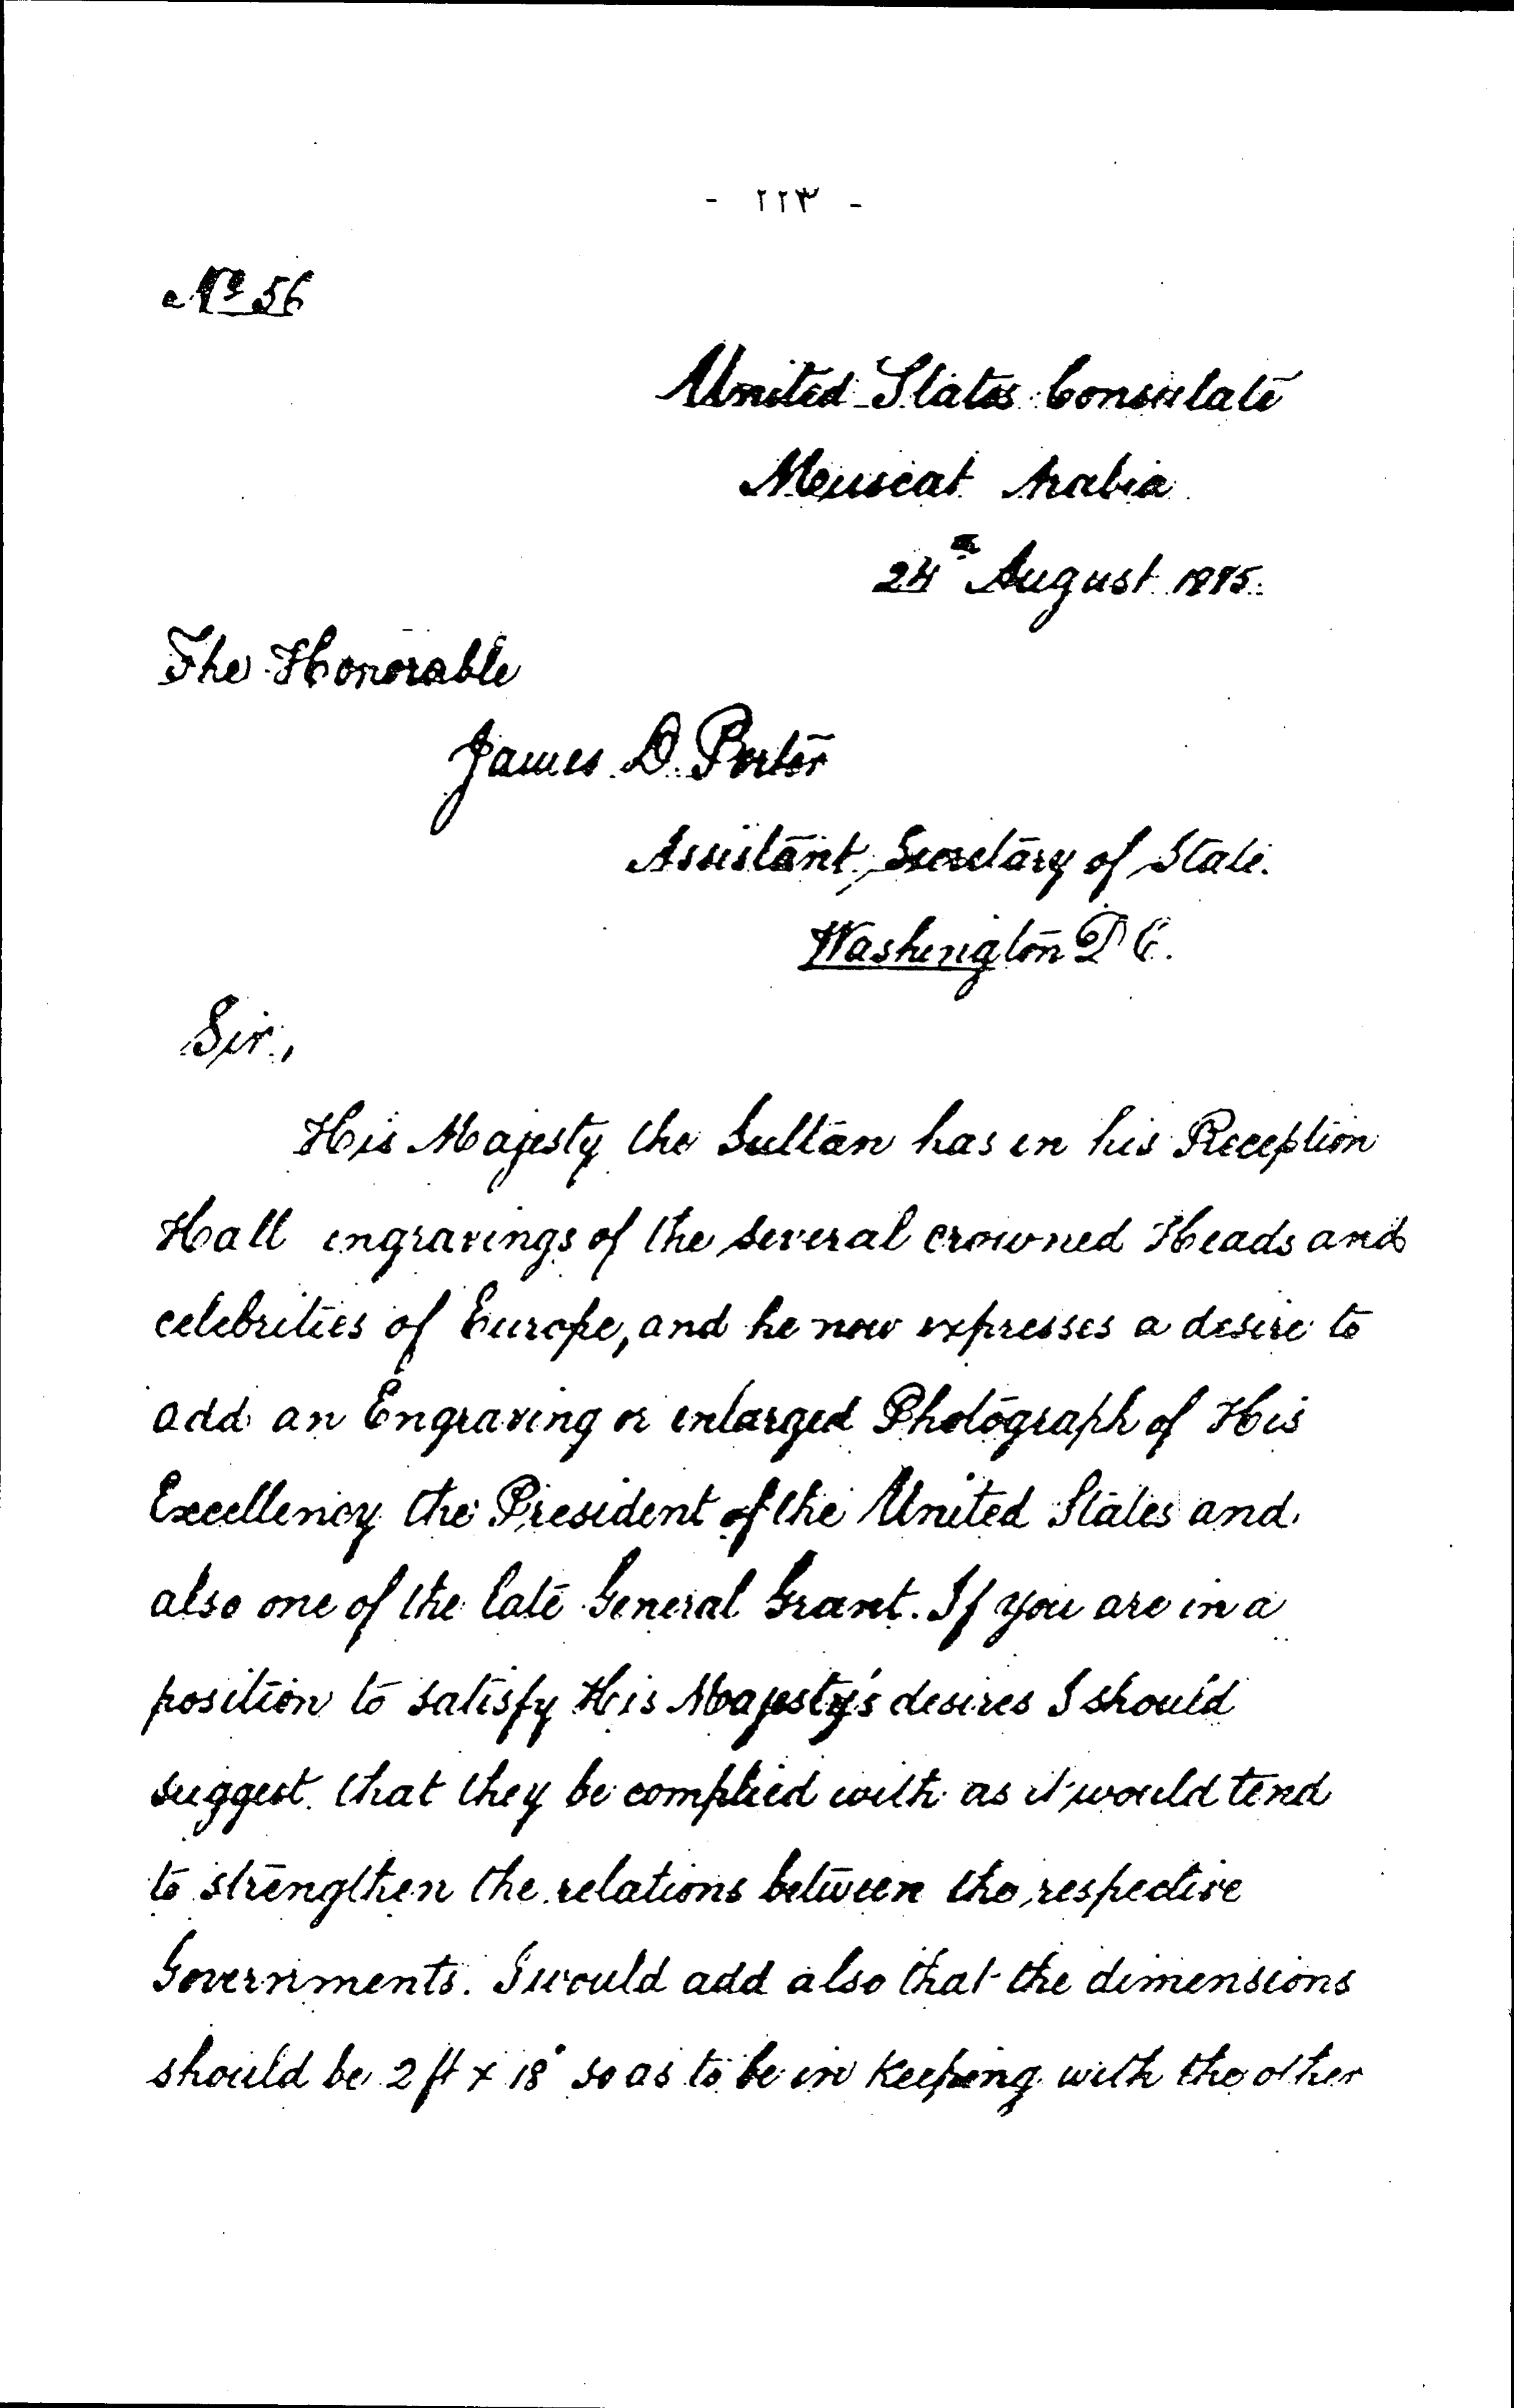 - ٢٢٣ -
No 56
United States Consulate
Muscat Arabia
24th August 1885.
The Honorable
James D. Porter
Assistant Secretary of State.
Washington D C.
Sir,
His Majesty the Sultan has in his Reception
Hall engravings of the several crowned Heads and
celebrities of Europe, and he now expresses a desire to
add an Engraving or enlarged Photograph of His
Excellency the President of the United States and
also one of the late General Grant. If you are in a
position to satisfy His Majesty's desires I should
suggest that they be complied with as it would tend
to strengthen the relations between the respective
Governments. I would add also that the dimensions
should be 2 ft x 18" so as to be in keeping with the other